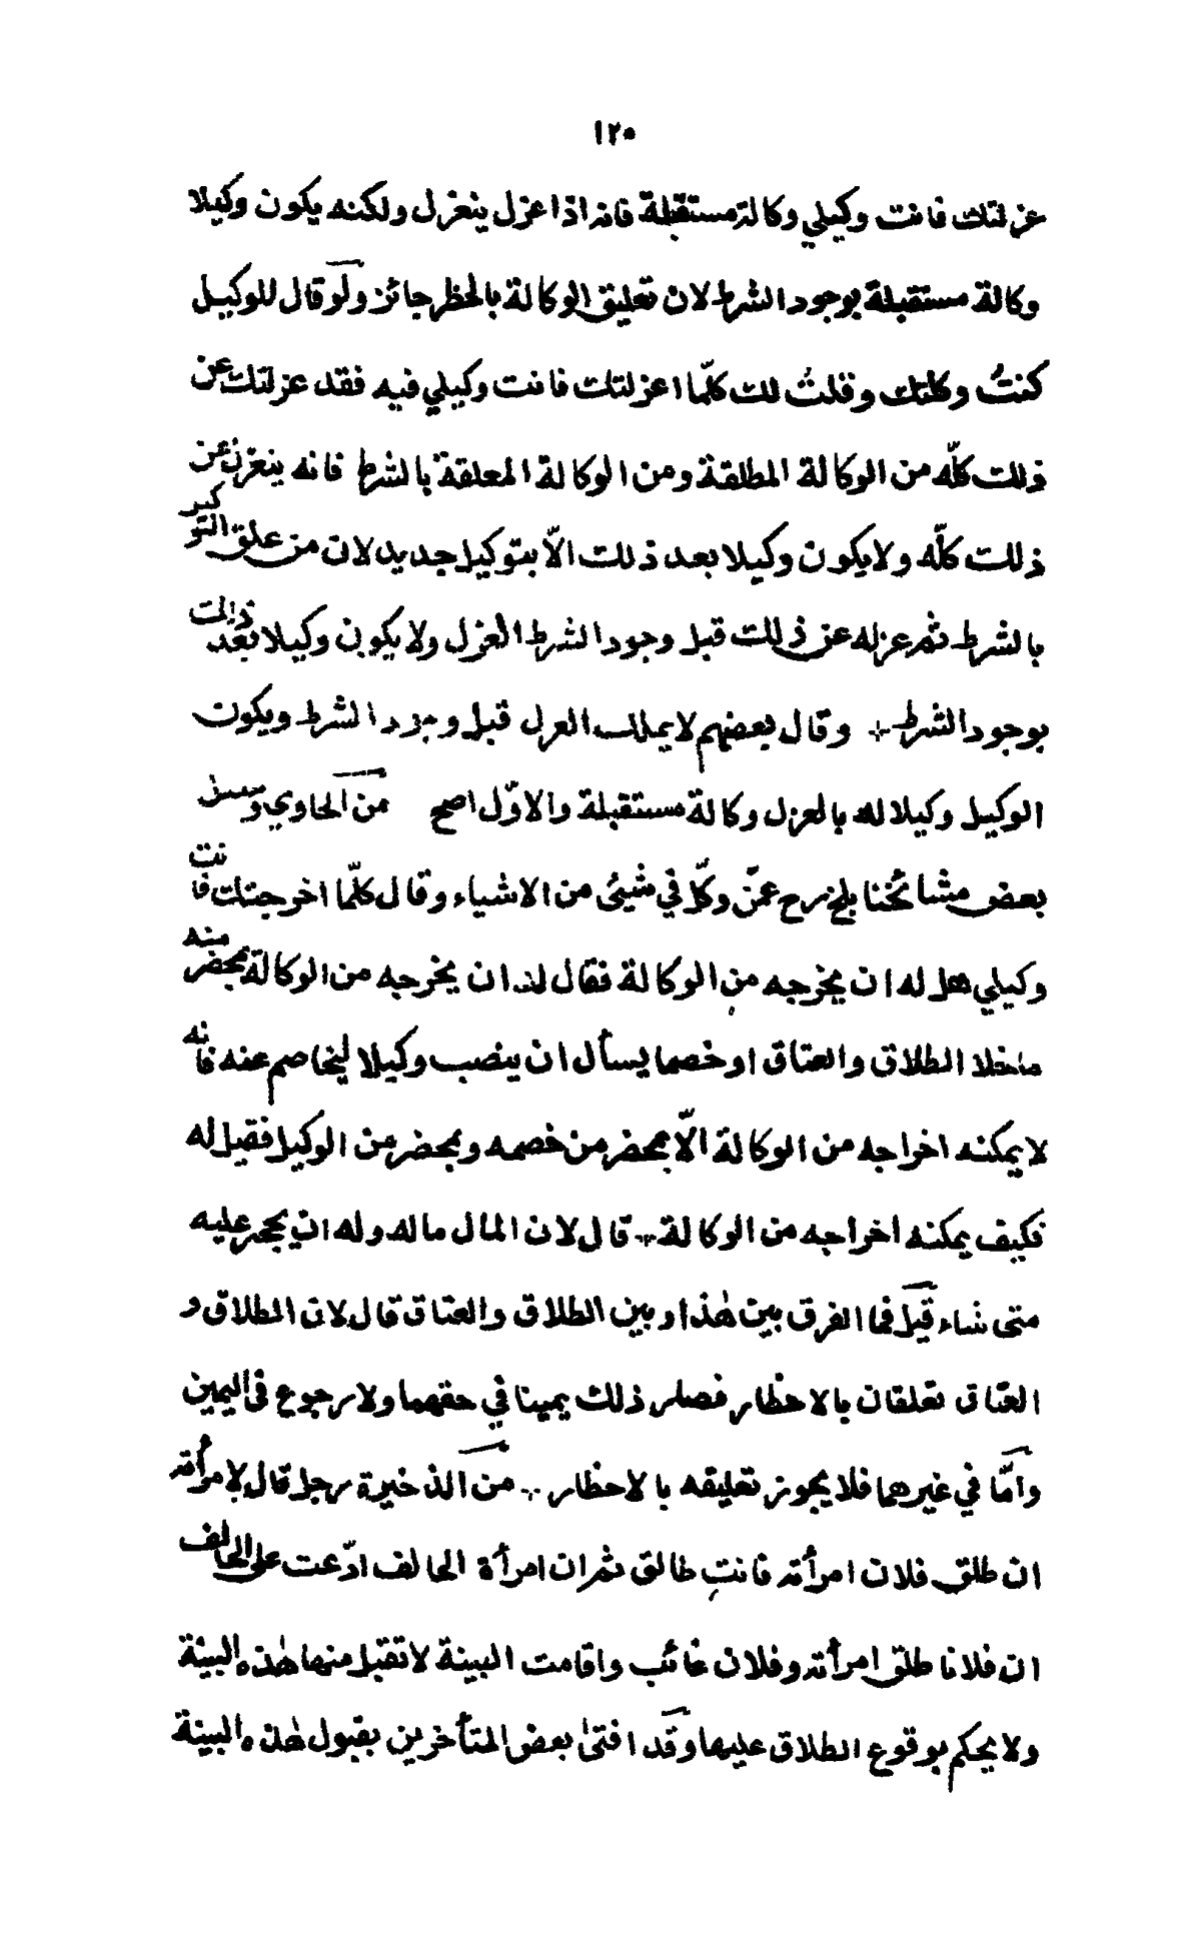 ١٢٥
عزلتك فانت وكيلي وكالة مستقبلة فانه اذا عزل ينعزل ولكنه يكون وكيلا
وكالة مستقبلة بوجود الشرط لان تعليق الوكالة بالخطر جائز ولو قال للوكيل
كنتُ وكلتك وقلتُ لك كلّما اعزلتك فانت وكيلي فيه فقد عزلتك عن
ذلك كلّه من الوكالة المطلقة ومن الوكالة المعلقة بالشرط فانه ينعزل عن
ذلك كلّه ولا يكون وكيلا بعد ذلك الّا بتوكيل جديد لان من علق التوكيل
بالشرط ثم عزله عن ذلك قبل وجود الشرط العزل ولا يكون وكيلا بعد ذالك
بوجود الشرط وقال بعضهم لا يملك العزل قبل وجود الشرط ويكون
الوكيل وكيلا له بالعزل وكالة مستقبلة والاوّل اصح من الحاوي وسئل
بعض مشائخنا بلخ رح عمّن وكّل في شيئ من الاشياء وقال كلّما اخرجتك فانت
وكيلي هل له ان يخرجه من الوكالة فقال له ان يخرجه من الوكالة بمحضر منه
ماخلا الطلاق والعتاق او خصما يسأل ان ينصب وكيلا ليخاصم عنه فانه
لا يمكنه اخراجه من الوكالة الّا بمحضر من خصمه وبمحضر من الوكيل فقيل له
فكيف يمكنه اخراجه من الوكالة قال لان المال ماله وله ان يحجر عليه
متى شاء قيل فما الفرق بين هٰذا وبين الطلاق والعتاق قال لان الطلاق و
العتاق تعلقان بالاخطار فصار ذلك يمينا في حقهما ولا رجوع في اليمين
وامّا في غيرهما فلا يجوز تعليقه بالاخطار من الذخيرة رجل قال لامرأته
ان طلق فلان امرأته فانتِ طالق ثم ان امرأة الحالف ادّعت على الحالف
ان فلانا طلق امرأته وفلان غائب واقامت البينة لا تقبل منها هٰذه البينة
ولا يحكم بوقوع الطلاق عليها وقد افتىٰ بعض المتأخرين بقبول هٰذه البينة